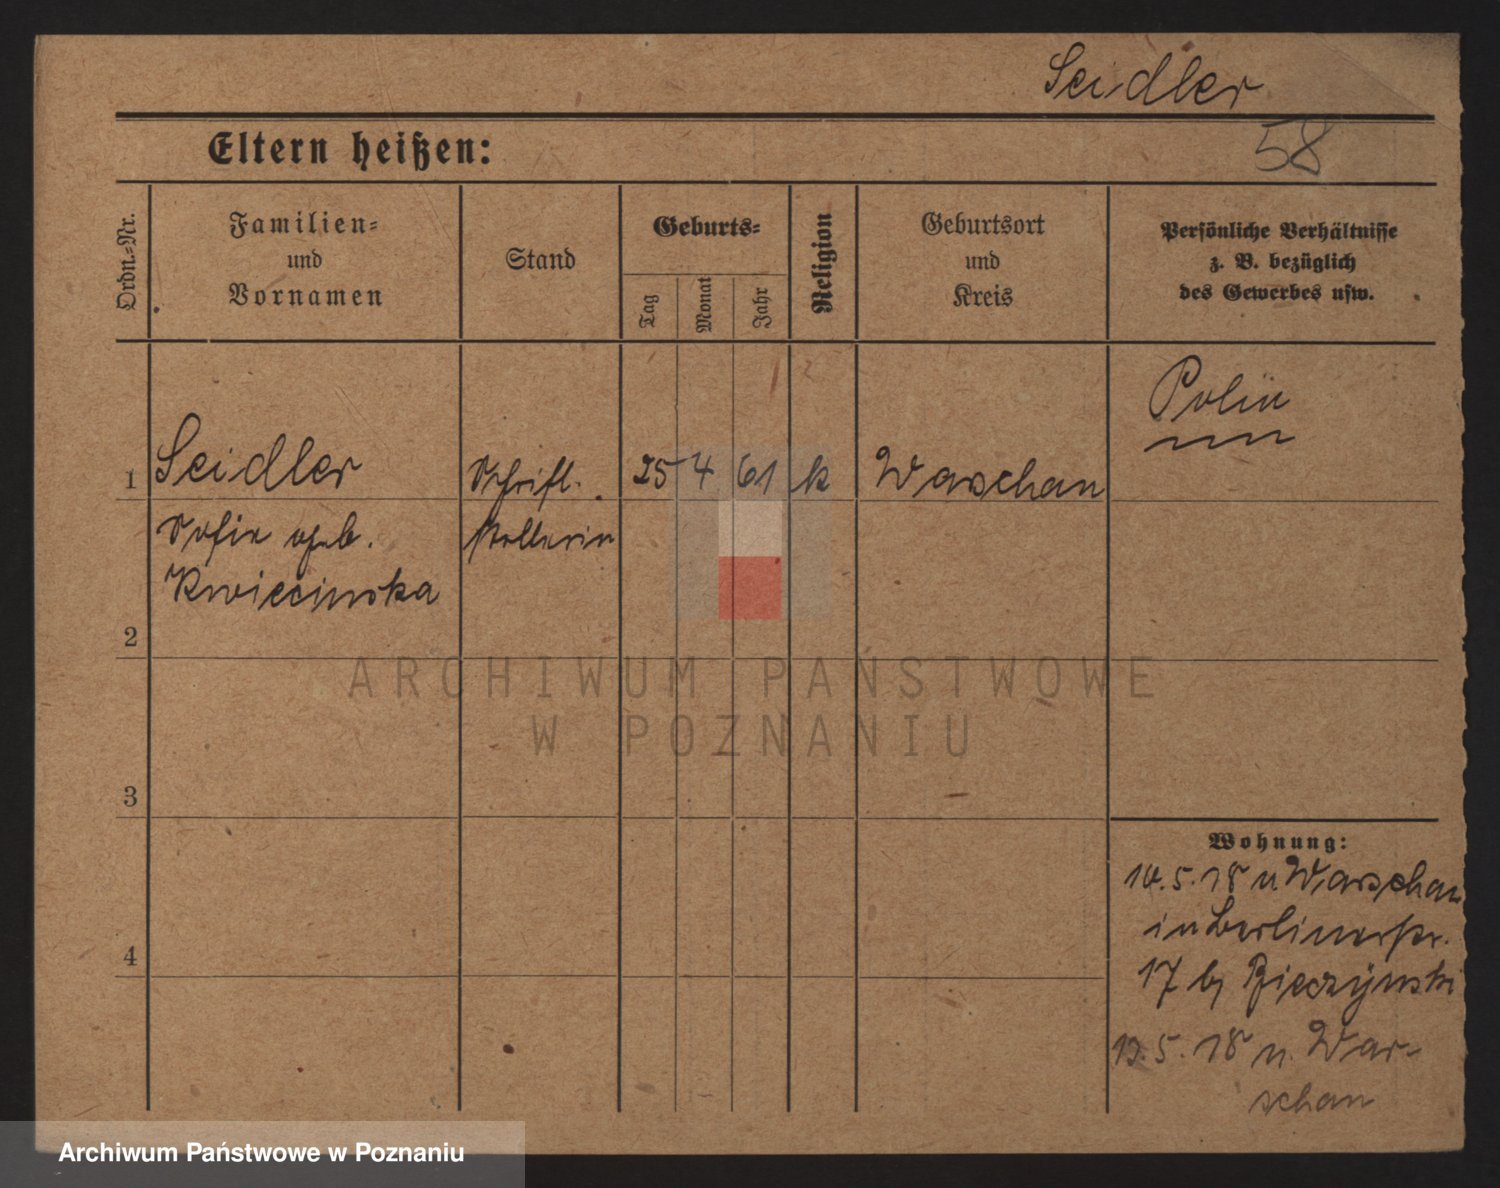 Seidler
58
Eltern heißen:
Ordn.-Nr.
Familien-
und
Vornamen
Stand
Geburts-
Tag
Monat
Jahr
Religion
Geburtsort
und
Kreis
Persönliche Verhältnisse
z. B. bezüglich
des Gewerbes usw.
Polin
1 Seidler Schriftl. 25 4 61 k Warschau
Sofie geb. stellerin
Kwiecinska
2
3
4
Wohnung:
10.5.18 n Warschau
in Berlinerstr.
17 by
13.5.18 n. War-
schau
ARCHIWUM PAŃSTWOWE
W POZNANIU
Archiwum Państwowe w Poznaniu